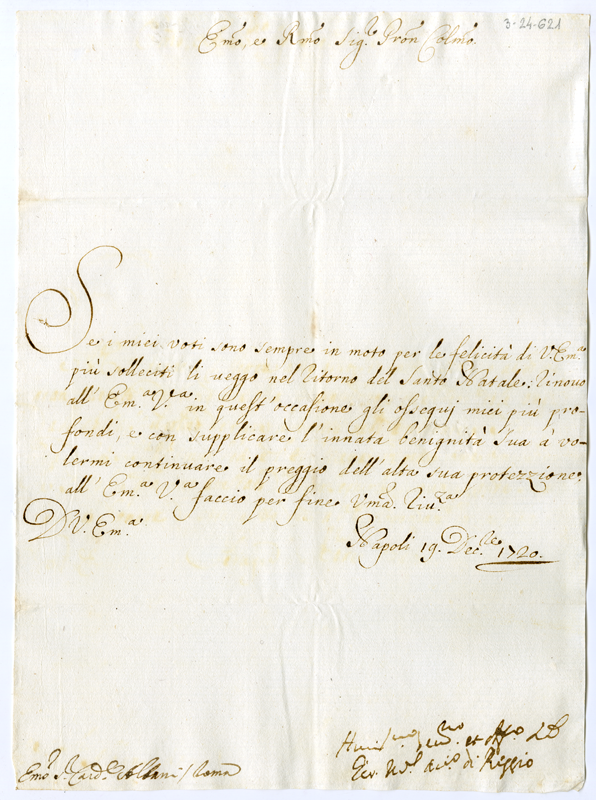 3-24-621
Emo, e Rmo Sig.r Pron Colmo.
Se i miei voti sono sempre in moto per le felicità di V. Em.a
più solleciti li veggo nel ritorno del Santo Natale: rinovo
all' Em.a V.a in quest' occasione gli ossequj miei più pro-
fondi, e con supplicare l'innata benignità sua à vo-
lermi continuare il preggio dell' alta sua protezzione,
all' Em.a V.a faccio per fine uma. riu.za
D V. Em.a
Napoli 19. Dec.le 1720.
Emo S. Card. Albani / Roma
di Reggio